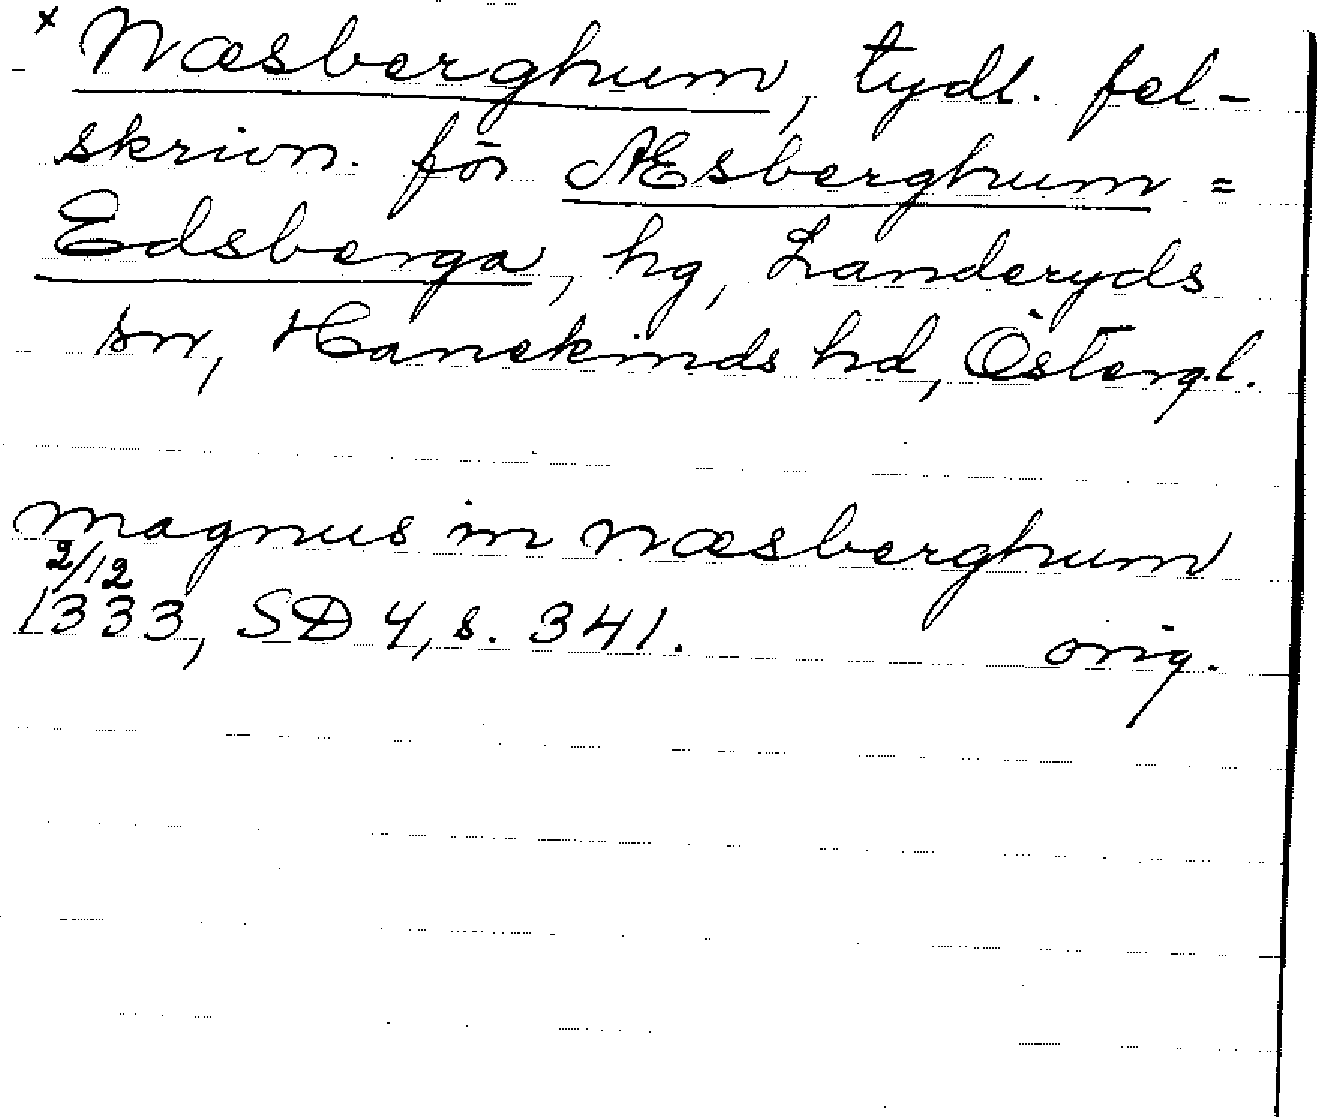 x Næsberghum, tydl. fel-
skrivn. för Æsberghum =
Edsberga, hg, Landeryds
sn, Hanekinds hd, Östergl.
magnus in næsberghum
2/12
1333, SD 4, s. 341. orig.